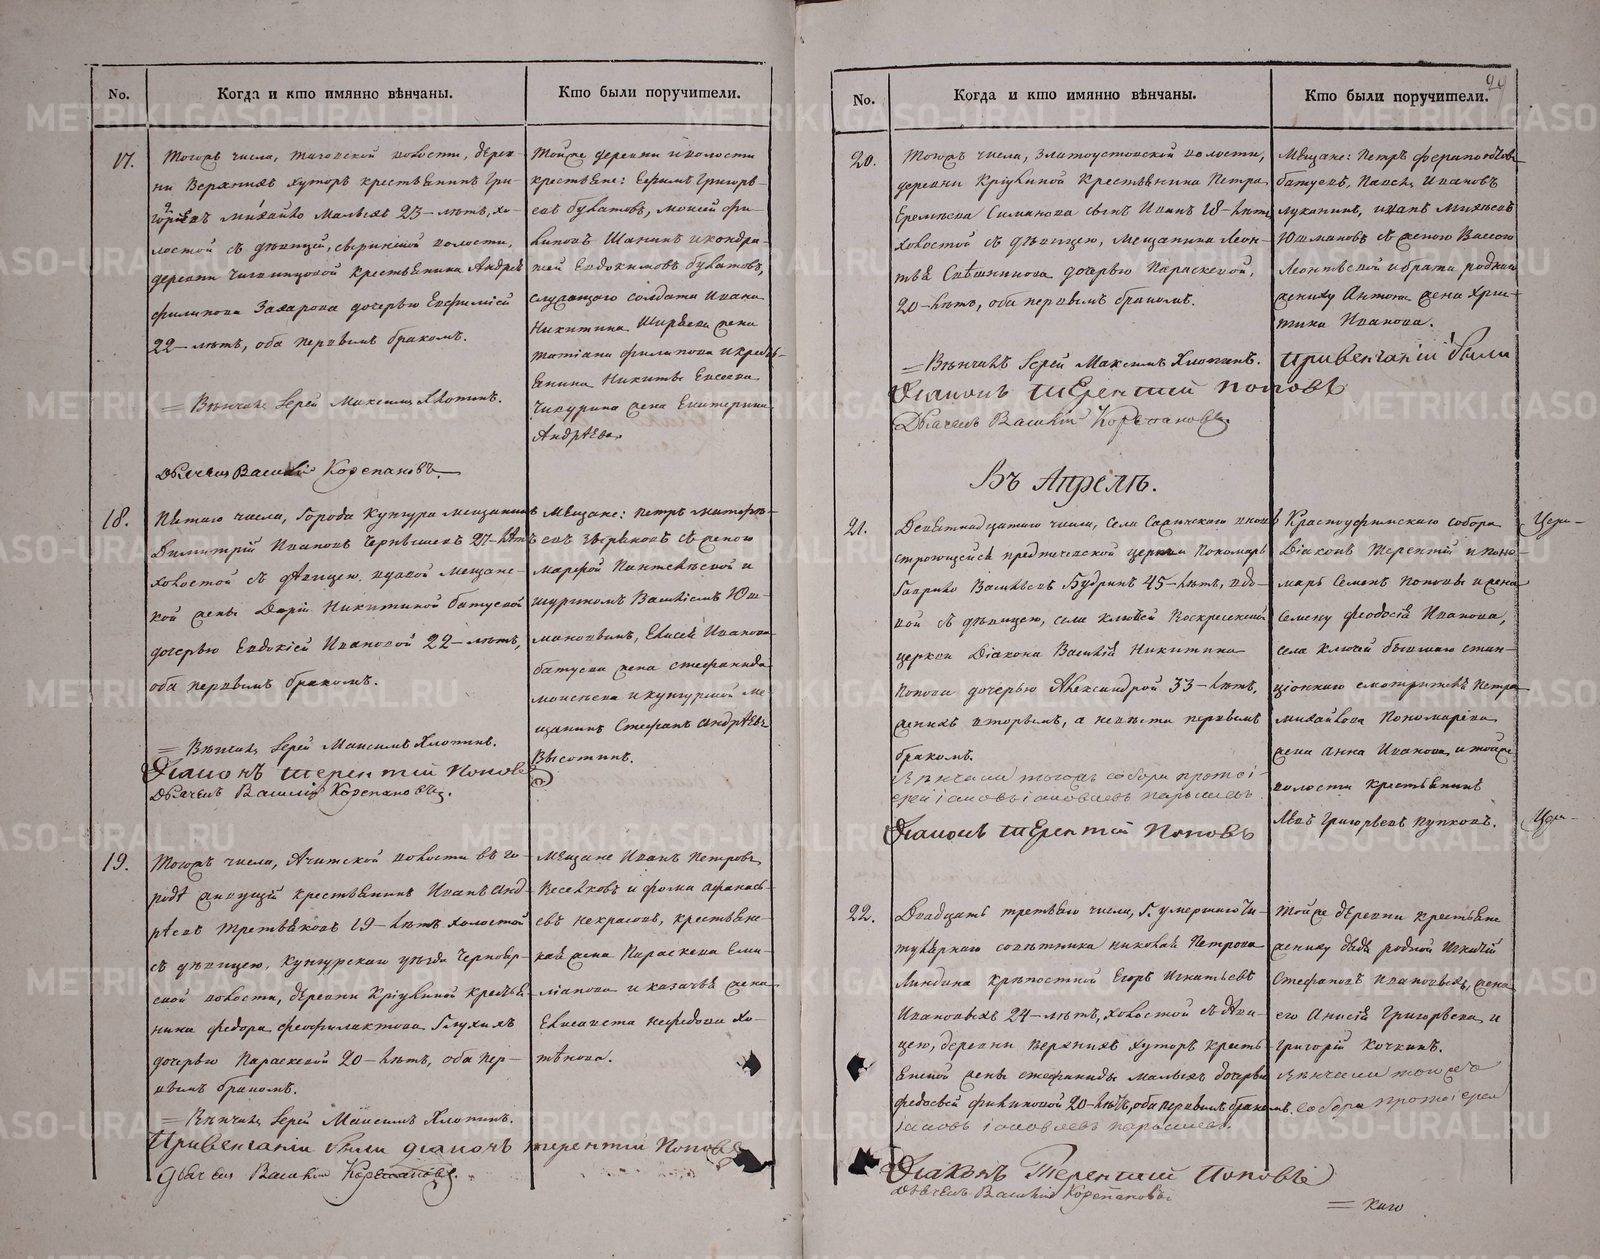 No.
Когда и кто имянно вѣнчаны.
Кто были поручители.
17.
Тогожъ числа, волости, дерев-
ни Верхнихъ Хуторъ крестьянинъ Гри-
Михайло Малыхъ 23-лѣтъ, хо-
лостой съ дѣвицей, волости,
деревни крестьянина Андрея
Филипова Захарова дочерью Евфиміей
22-лѣтъ, оба первымъ бракомъ.
= Вѣнчалъ Іерей Максимъ Хлопинъ.
Дьячекъ Василій Корепановъ.
Тойже деревни и волости
крестьяне: Ефимъ Григорь-
евъ Булатовъ, Моисей Фи-
липовъ Шанинъ и Кондра-
тей Евдокимовъ Булатовъ,
служащаго солдата Ивана
Никитина жена
Татіана Филипова и кресть-
янина Никиты Евсеева
Чикурина жена Екатерина
Андрѣева.
18.
Пятаго числа, Города Кунгура мещанинъ
Димитрій Ивановъ Чернышевъ 27-лѣтъ
холостой съ дѣвицею, вдовой мещанс-
кой жены Даріи Никитиной Батуевой
дочерью Евдокіей Ивановой 22-лѣтъ,
оба первымъ бракомъ.
= Вѣнчалъ Іерей Максимъ Хлопинъ.
Діаконъ Терентій Поповъ
Дьячекъ Василій Корепановъ.
Мещане: Петръ
евъ Звѣревъ съ женою
Марфой Пантелѣевой и
шуриномъ Василіемъ Юш-
мановымъ, Елисея Иванова
Батуева жена Стефанида
Моисеева и кунгурской ме-
щанинъ Стефанъ Андрѣевъ
Высотинъ.
19.
Тогожъ числа, Ачитской волости въ го-
родѣ живущій крестьянинъ Иванъ Анд-
рѣевъ Третьяковъ 19-лѣтъ холостой
съ дѣвицею, Кунгурскаго уѣзда Чернояр-
ской волости, деревни Кріулиной крестья-
нина Федора Феофилактова Глухихъ
дочерью Параскевой 20-лѣтъ, оба пер-
вымъ бракомъ.
= Вѣнчалъ Іерей Максимъ Хлопинъ.
Привенчаніи были діаконъ Терентій Поповъ
Дьячекъ Василій Корепановъ.
Мещане Иванъ Петровъ
Веселковъ и Фома Афанась-
евъ Некрасовъ, крестьянс-
кая жена Параскева Еми-
ліанова и казачья жена
Елисавета Нефедова Хо-
тѣнова.
No.
Когда и кто имянно вѣнчаны.
Кто были поручители.
20.
Тогожъ числа, Златоустовской волости,
деревни Кріулиной Крестьянина Петра
Еремѣева Симанова сынъ Иванъ 18-лѣтъ
холостой съ дѣвицею, мещанина Леон-
тья дочерью Параскевой,
20-лѣтъ, оба первымъ бракомъ.
= Вѣнчалъ Іерей Максимъ Хлопинъ.
Діаконъ Терентій Поповъ
Дьячекъ Василій Корепановъ.
Мещане: Петръ
Батуевъ, Павелъ Ивановъ
Луканинъ, Иванъ Михѣевъ
Юшмановъ съ женою Вассою
Леонтьевой и брата роднаго
жениху Антона жена Хрис-
тина Иванова.
Привенчаніи были
Въ Апрелѣ.
21.
Девятнадцатаго числа, Села Саринскаго вновь
строющейся предтечевской церкви Пономарь
Гаврило Васильевъ Будринъ 45-лѣтъ, вдо-
вой съ дѣвицею, села Ключей Воскресенской
церкви Діакона Василія Никитина
Попова дочерью Александрой 33-лѣтъ,
женихъ вторымъ, а невѣста первымъ
бракомъ.
Вѣнчали тогожъ собора протої-
ерей Іаковъ Іаковлевъ
Діаконъ Терентій Поповъ
Красноуфимскаго собора
Діаконъ Терентій и поно-
марь Семенъ Поповы и жена
Семену Феодосія Иванова,
села Ключей бывшаго стан-
ціоннаго смотрителя Петра
Михайлова Пономарева
жена Анна Иванова и тойже
волости крестьянинъ
Левъ Григорьевъ Пупковъ.
22.
Двадцать третьяго числа, Г. умершаго Ти-
тулярнаго совѣтника Николая Петрова
крѣпостной Егоръ Игнатьевъ
Ивановыхъ 24-лѣтъ, холостой съ дѣви-
цею, деревни Верхнихъ Хуторъ кресть-
янской жены Стефаниды Малыхъ дочерью
Федосьей Филиповой 20-лѣтъ, оба первымъ бракомъ.
Діаконъ Терентій Поповъ
Дьячекъ Василій Корепановъ
Тойже деревни крестьяне
жениху дядя родной Игнатій
Стефановъ Ивановыхъ, жена
его Анисія Григорьева и
Григорій Кочкинъ.
Вѣнчали тогожъ
собора протоіерей
Іаковъ Іаковлевъ
METRIKI.GASO-URAL.RU